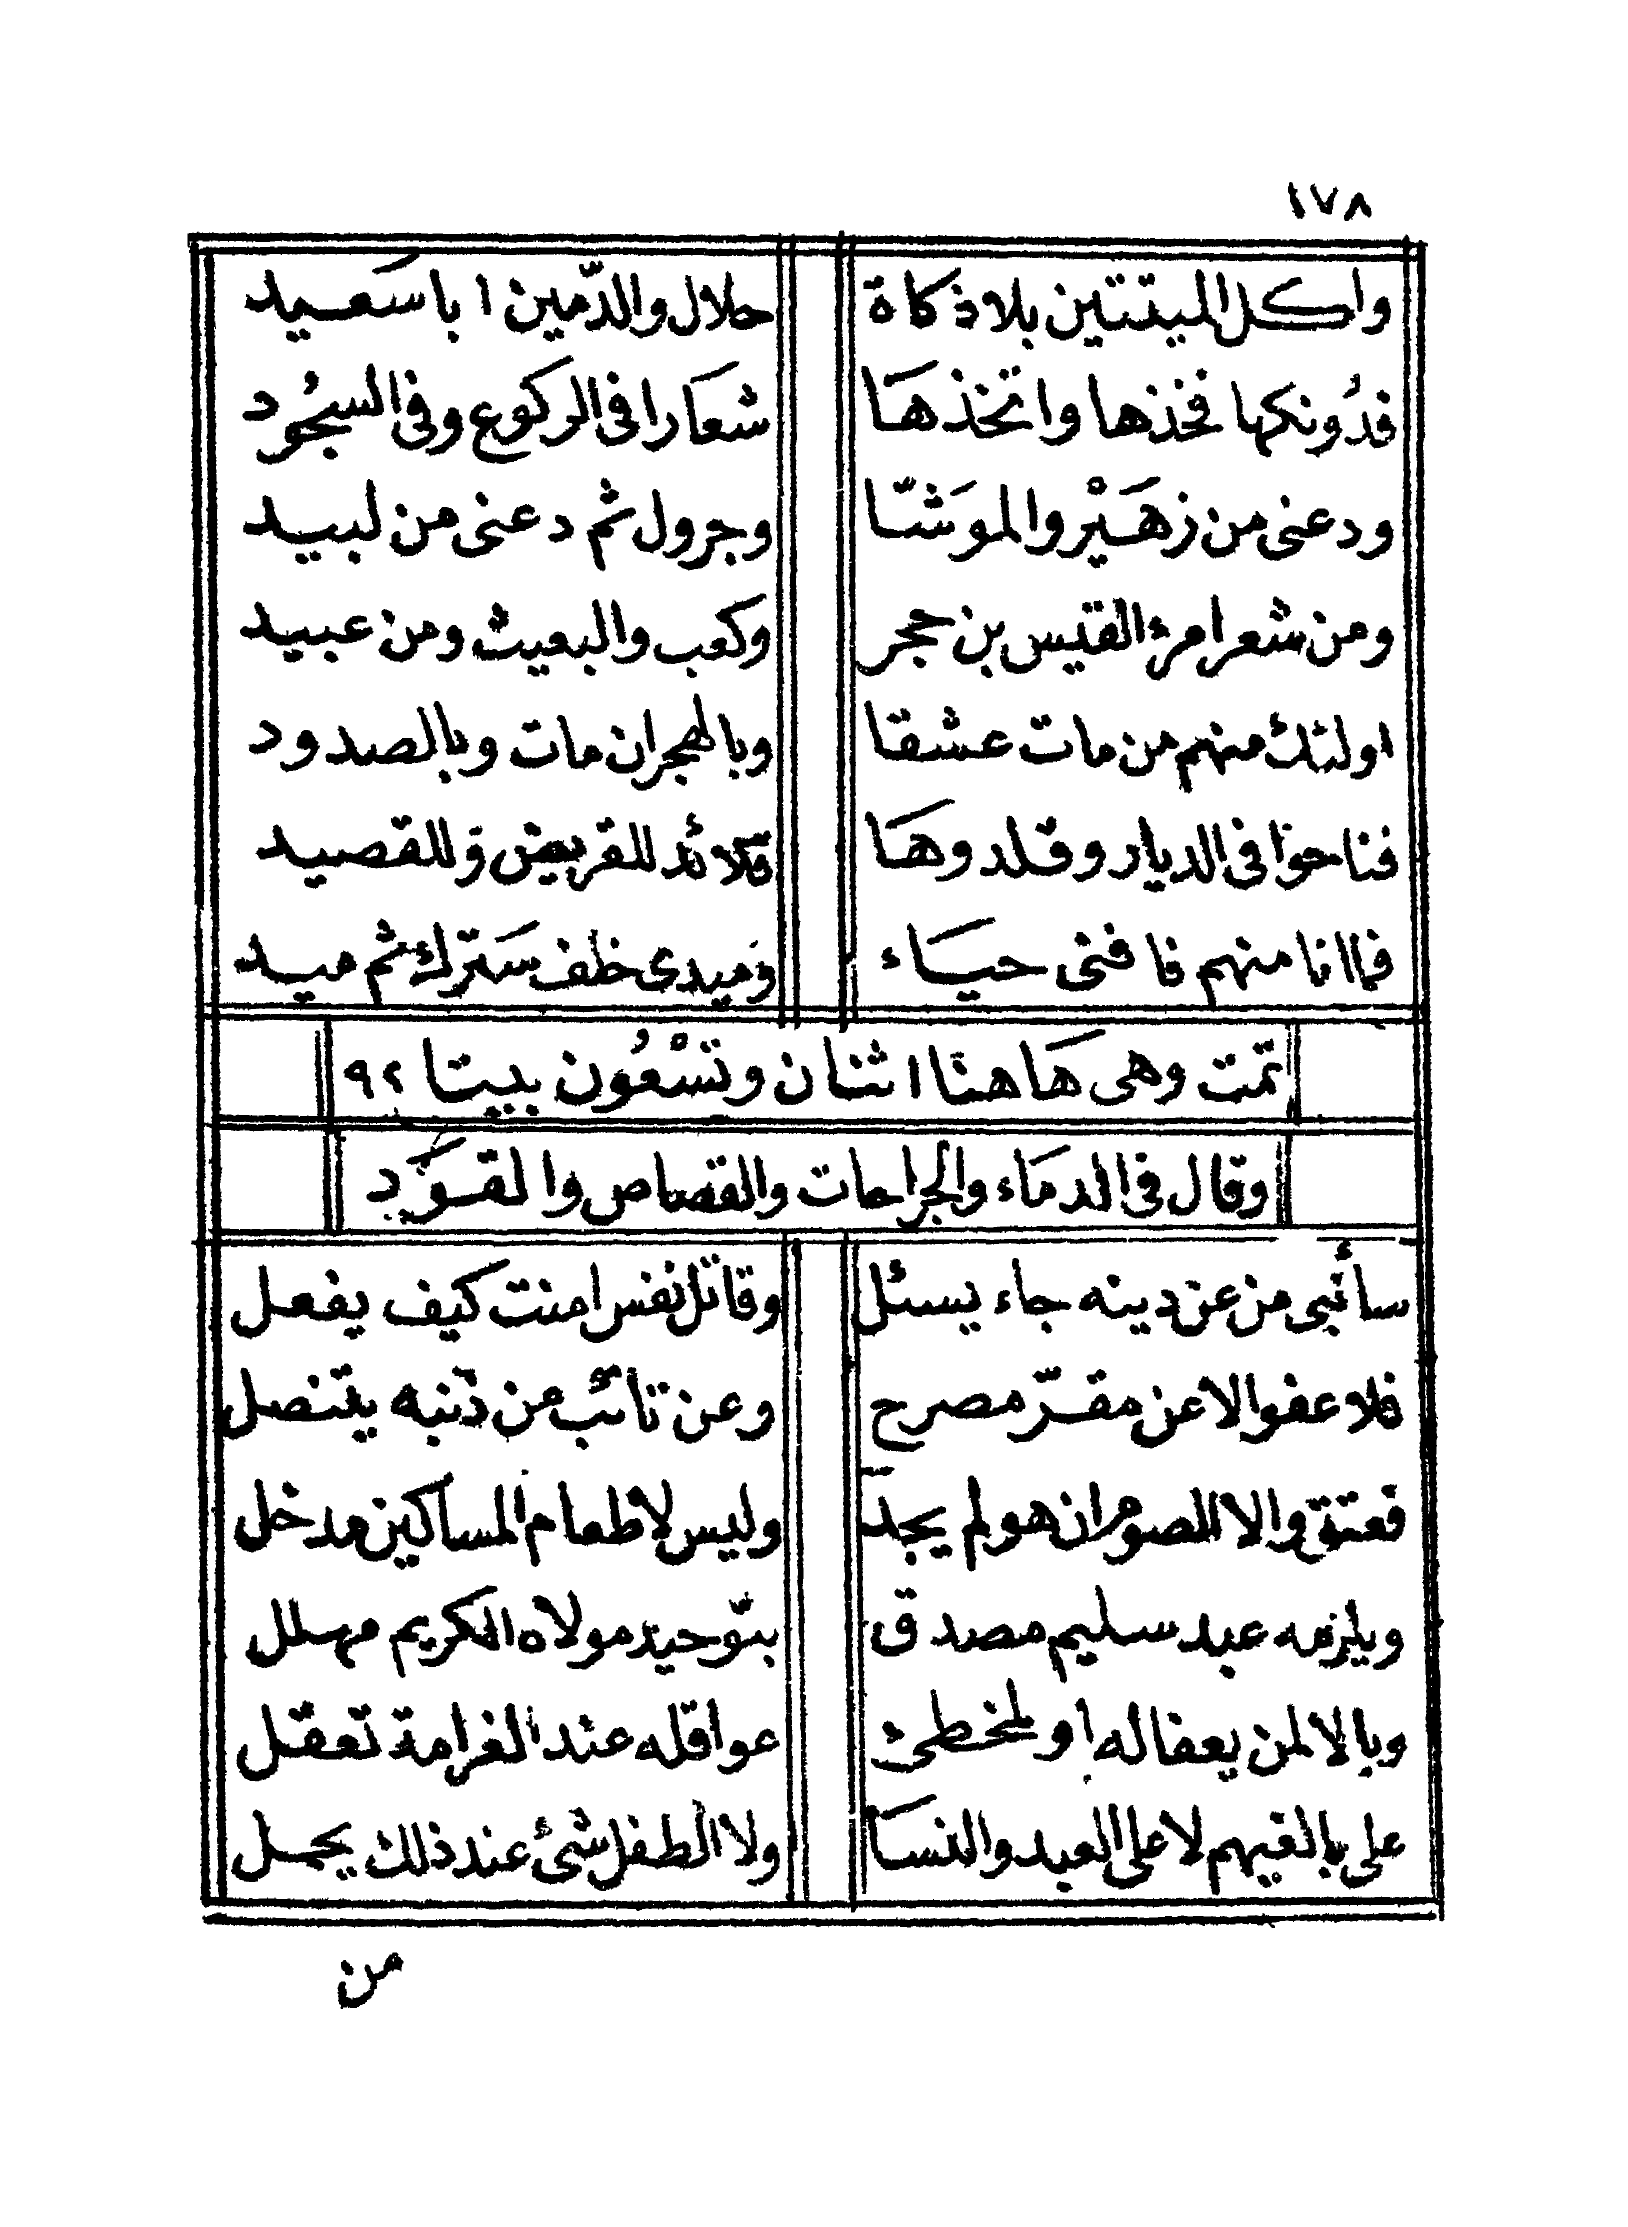 ١٧٨
واكل الميتتين بلا ذكاة حلال والدّمين ا با سَعيد
فدُونكها فخذها واتخذهَا شعَارا فى الركوع وفى السجُود
ودعنى من زهَيْر والموَشّا وجرول ثم دعنى من لبيد
ومن شعر امرئ القيس بن حجر وكعب والبعيث ومن عبيد
اولئك منهم من مات عشقا وبالهجران مات وبالصدود
فناحوا فى الديار وقلد وهَا قلائد للقريض وَللقصيد
فاما انا منهم فا فنى حيَاء وَميدى خلف سَترك ثم ميد
تمت وهى هَا هنا اثنان وتسْعُون بيتا ٩٢
وقال فى الدمَاء والجراحات والقصاص والقوَد
سأنبى من عن دينه جاء يسئل وقاتل نفس امنت كيف يفعل
فلا عفو الا عن مقرّ مصرح وعن تائب من ذنبه يتنصل
فعتق والا الصوم ان هو لم يجد وليس لاطعام المساكين مدخل
ويلزمه عبد سليم مصدق بتوّحيد مولاه الكريم مهلل
وبالا لمن يعفا له او لمخطئ عواقله عند الغرامة تعقل
على بالغيهم لا على العبد والنسَا ولا الطفل شئ عند ذلك يحمل
من